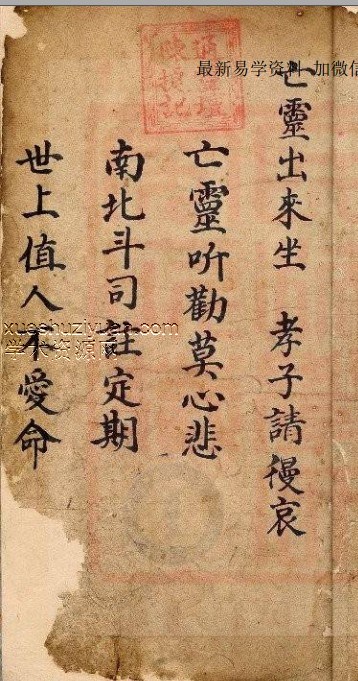 最新易学资料 加微信
亡靈出來坐 孝子請慢哀
亡靈听勸莫心悲
南北斗司註定期
世上值人不愛命
xueshuziyuan.com
学术资源网